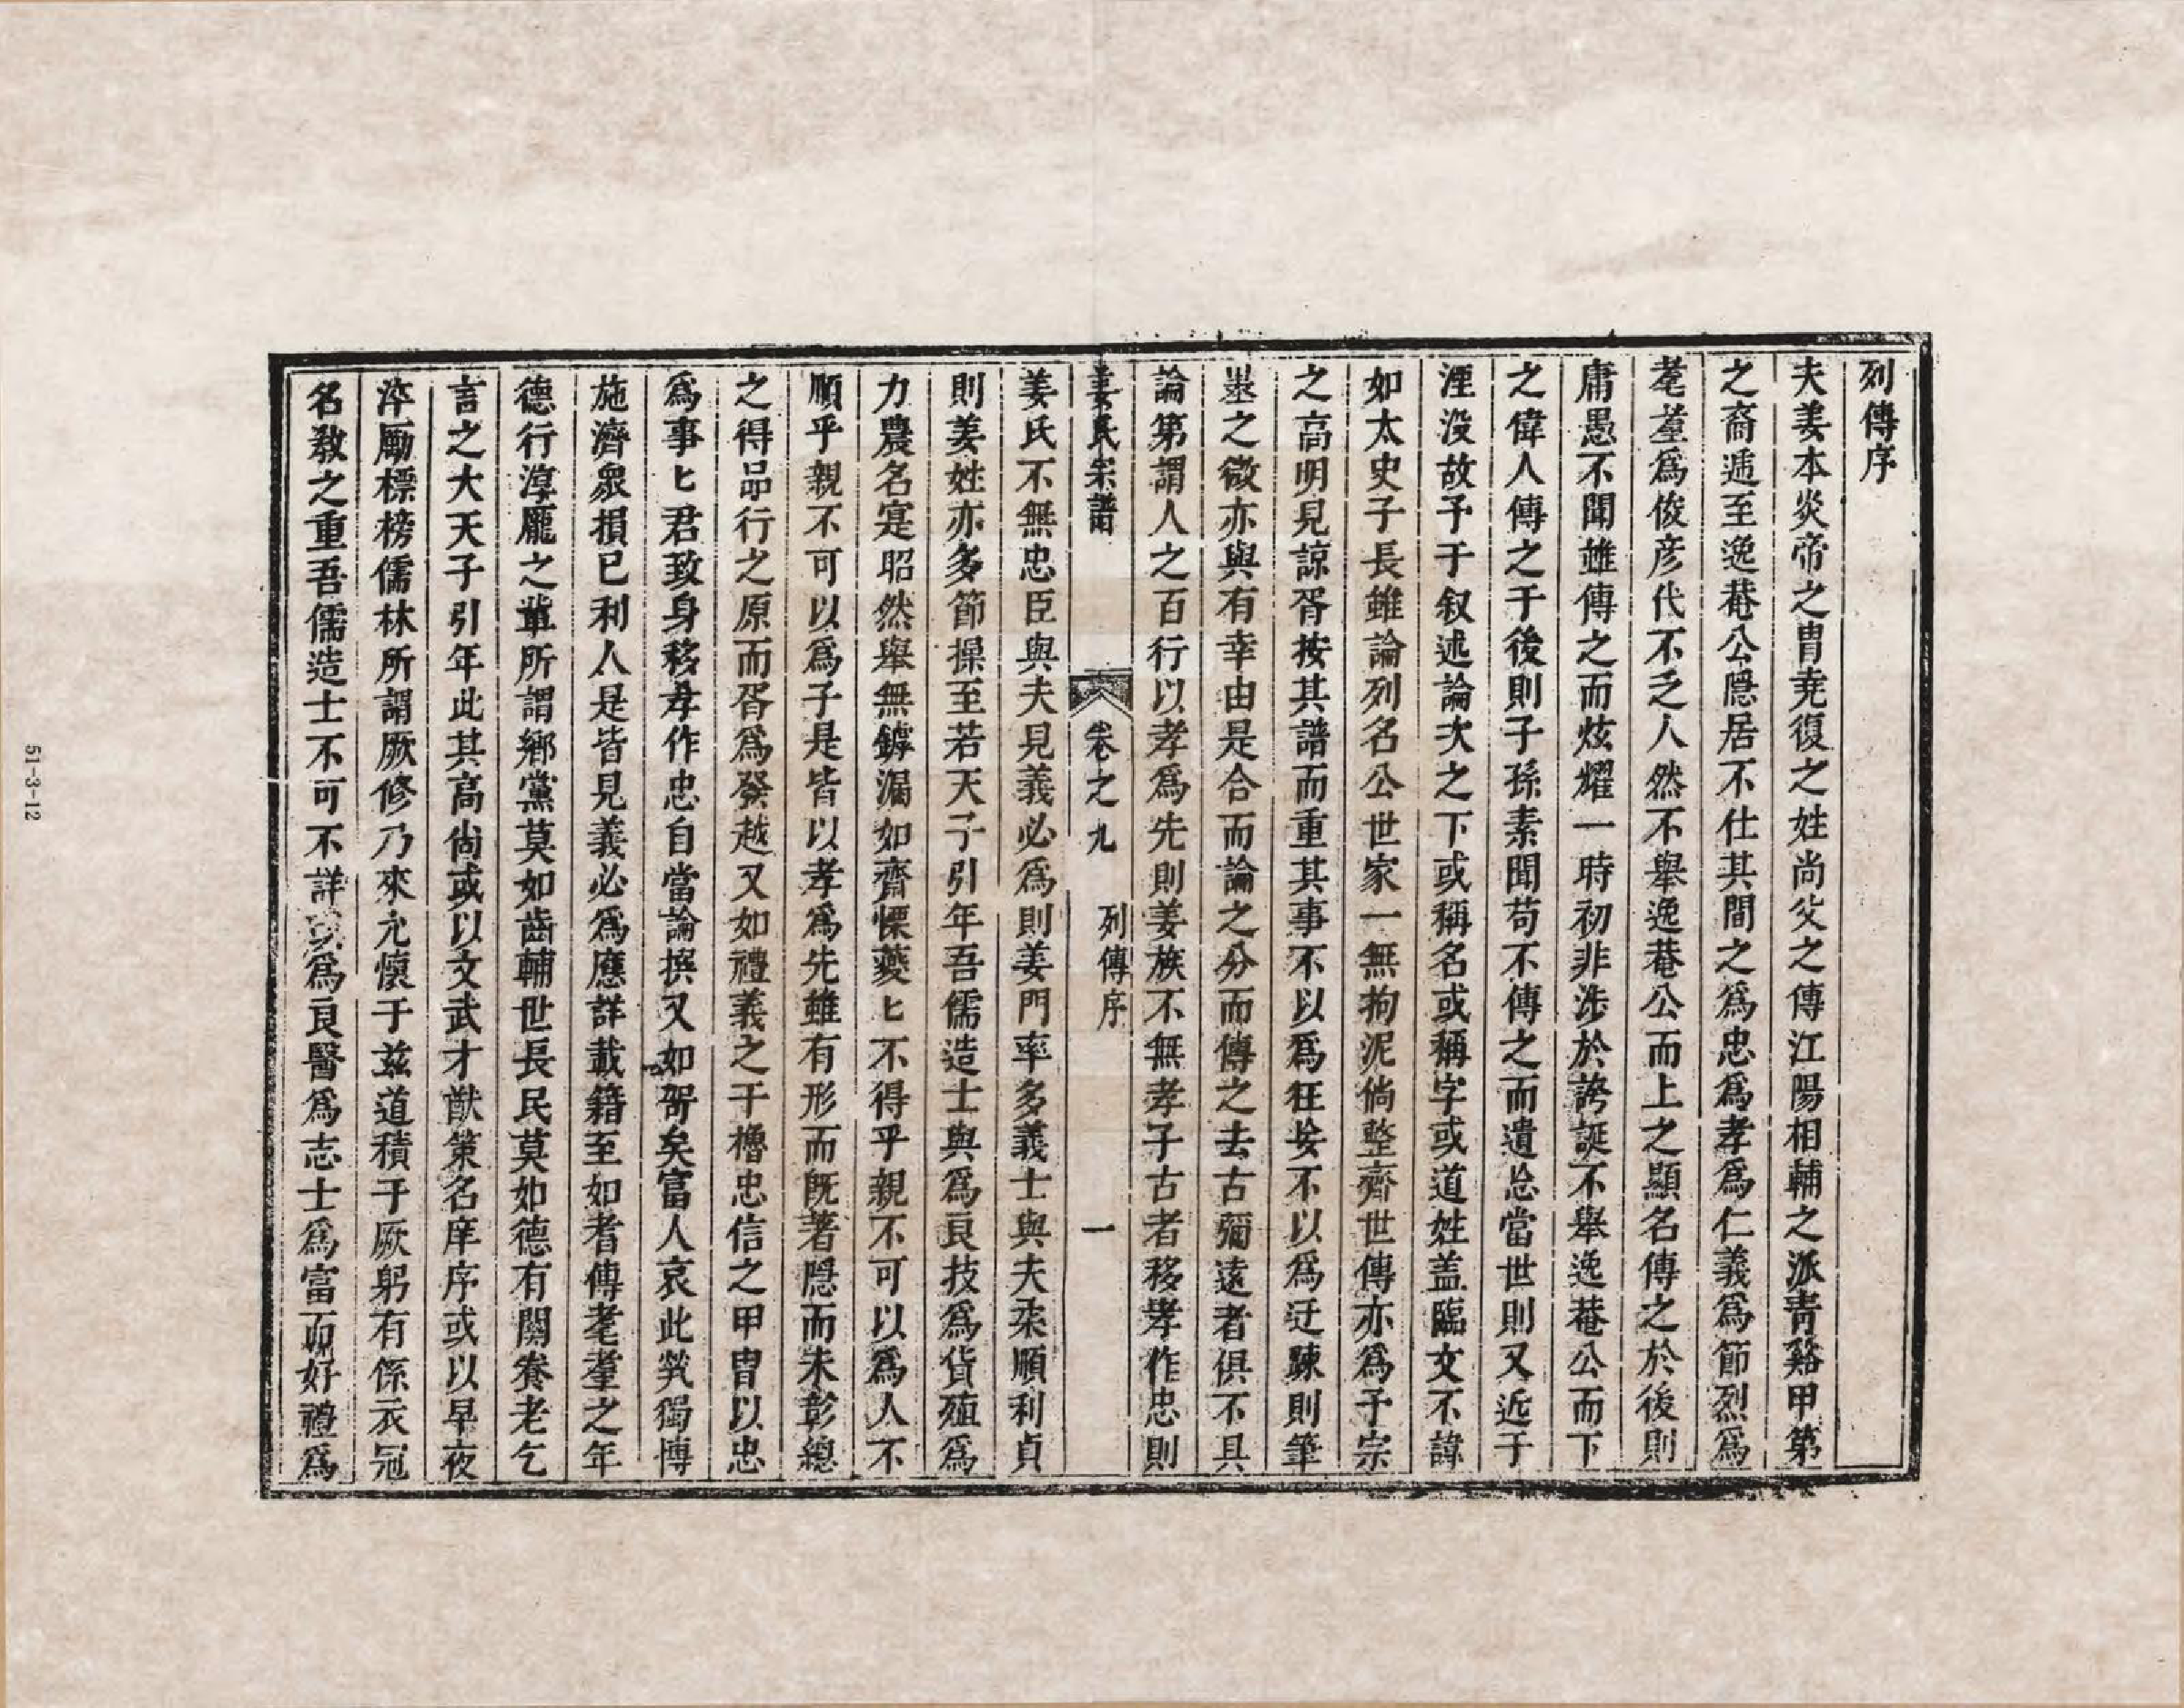 列傳序
夫姜本炎帝之胄堯復之姓尚父之傳江陽相輔之派青谿甲第
之裔遞至逸菴公隠居不仕其間之為忠為孝為仁義為節烈為
耄耋為俊彦代不乏人然不舉逸菴公而上之顯名傳之於後則
庸愚不聞雖傳之而炫耀一時初非涉於誇誕不舉逸菴公而下
之偉人傳之于後則子孫素聞苟不傳之而遺忩當世則又近于
湮没故予于叙述論次之下或稱名或稱字或道姓盖臨文不諱
如太史子長雖論列名公世家一無拘泥倘整齊世傳亦為予宗
之高明見諒胥按其譜而重其事不以為狂妄不以為迂踈則筆
墨之微亦與有幸由是合而論之分而傳之去古彌遠者俱不具
論第謂人之百行以孝為先則姜族不無孝子古者移孝作忠則
姜氏宗譜 卷之九 列傳序 一
姜氏不無忠臣與夫見義必為則姜門率多義士與夫柔順利貞
則姜姓亦多節操至若天子引年吾儒造士與為良技為貨殖為
力農名寔昭然舉無罅漏如齋慄夔匕不得乎親不可以為人不
順乎親不可以為子是皆以孝為先雖有形而既著隠而未彰總
之得品行之原而胥為發越又如禮義之干櫓忠信之甲胄以忠
為事匕君致身移孝作忠自當論撰又如哿矣富人哀此煢獨博
施濟衆損已利人是皆見義必為應詳載籍至如耆傳耄耋之年
德行淳龐之軰所謂鄉黨莫如齒輔世長民莫如德有關養老乞
言之大天子引年此其高尚或以文武才猷策名庠序或以早夜
淬厲標榜儒林所謂厥修乃來允懷于兹道積于厥躬有係衣冠
名教之重吾儒造士不可不詳為良醫為志士為富而好禮為
51-3-12